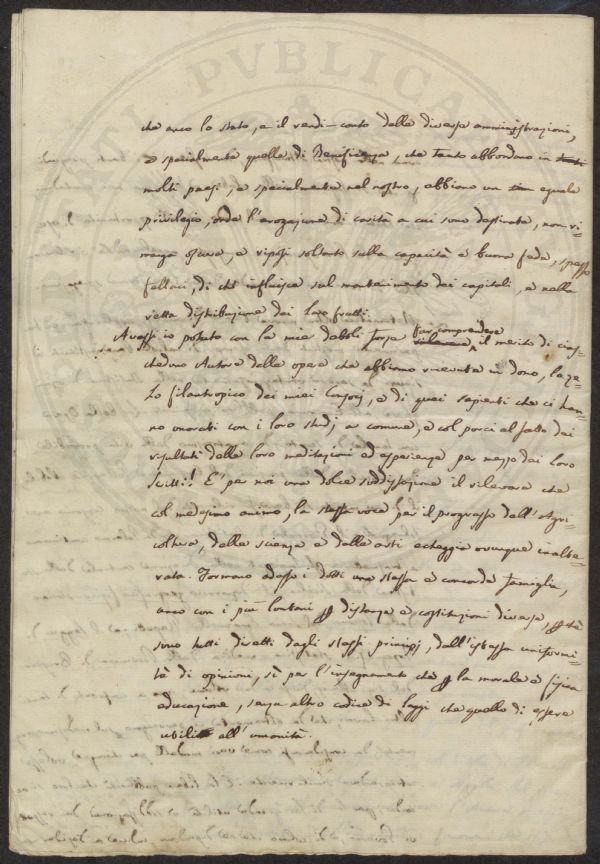 PVBLICA
che anco lo stato, e il rendi-conto delle diverse amministrazioni,
e specialmente quelle di Beneficenza, che tanto abbondano in
molti paesi, e specialmente nel nostro, abbiano un eguale
privilegio, onde l'erogazione di carità a cui sono destinate, non ri-
manga oscura, e riposi soltanto sulla capacità e buona fede, spesso
fallaci, di chi influisce sul mantenimento dei capitali, e nella
retta distribuzione dei loro frutti.
Avessi io potuto con la mie deboli forze far comprendere il merito di cias-
cheduno Autore delle opere che abbiamo ricevute in dono, lo ze-
lo filantropico dei miei Consocj, e di quei sapienti che ci han-
no onorati con i loro studj in comune, e col porci al fatto dei
risultati delle loro meditazioni ed esperienze per mezzo dei loro
Scritti! E' per noi una dolce suddisfazione il rilevare che
col medesimo animo, la stessa voce per il progresso dell'Agri-
coltura, delle scienze e delle arti echeggia ovunque inalte-
rata. Formano adesso i dotti una stessa e concorde famiglia,
anco con i più lontani di distanza e costituzioni diverse,
sono tutti diretti dagli stessi principj, dall'istessa uniformi-
tà di opinioni, sì per l'insegnamento che la morale e fisica
educazione, senza altro codice di leggi che quello di essere
utili all'umanità.